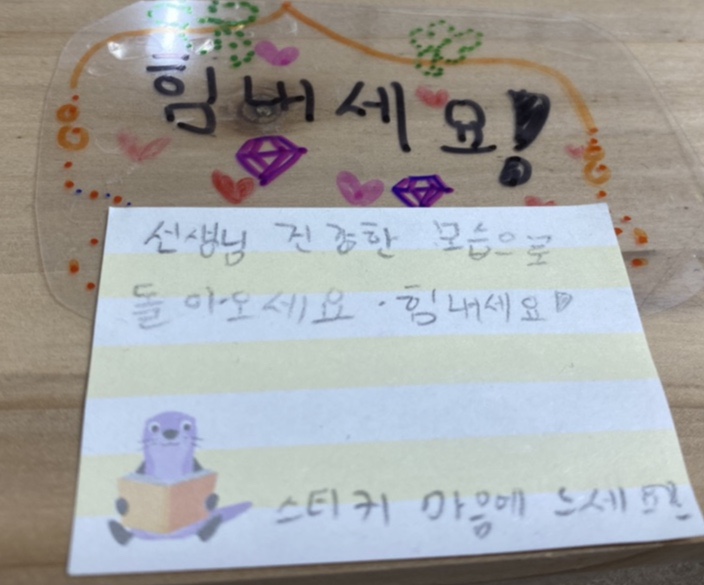 힘내세요!
선생님 건강한 모습으로
돌아오세요. 힘내세요!
스티커 마음에